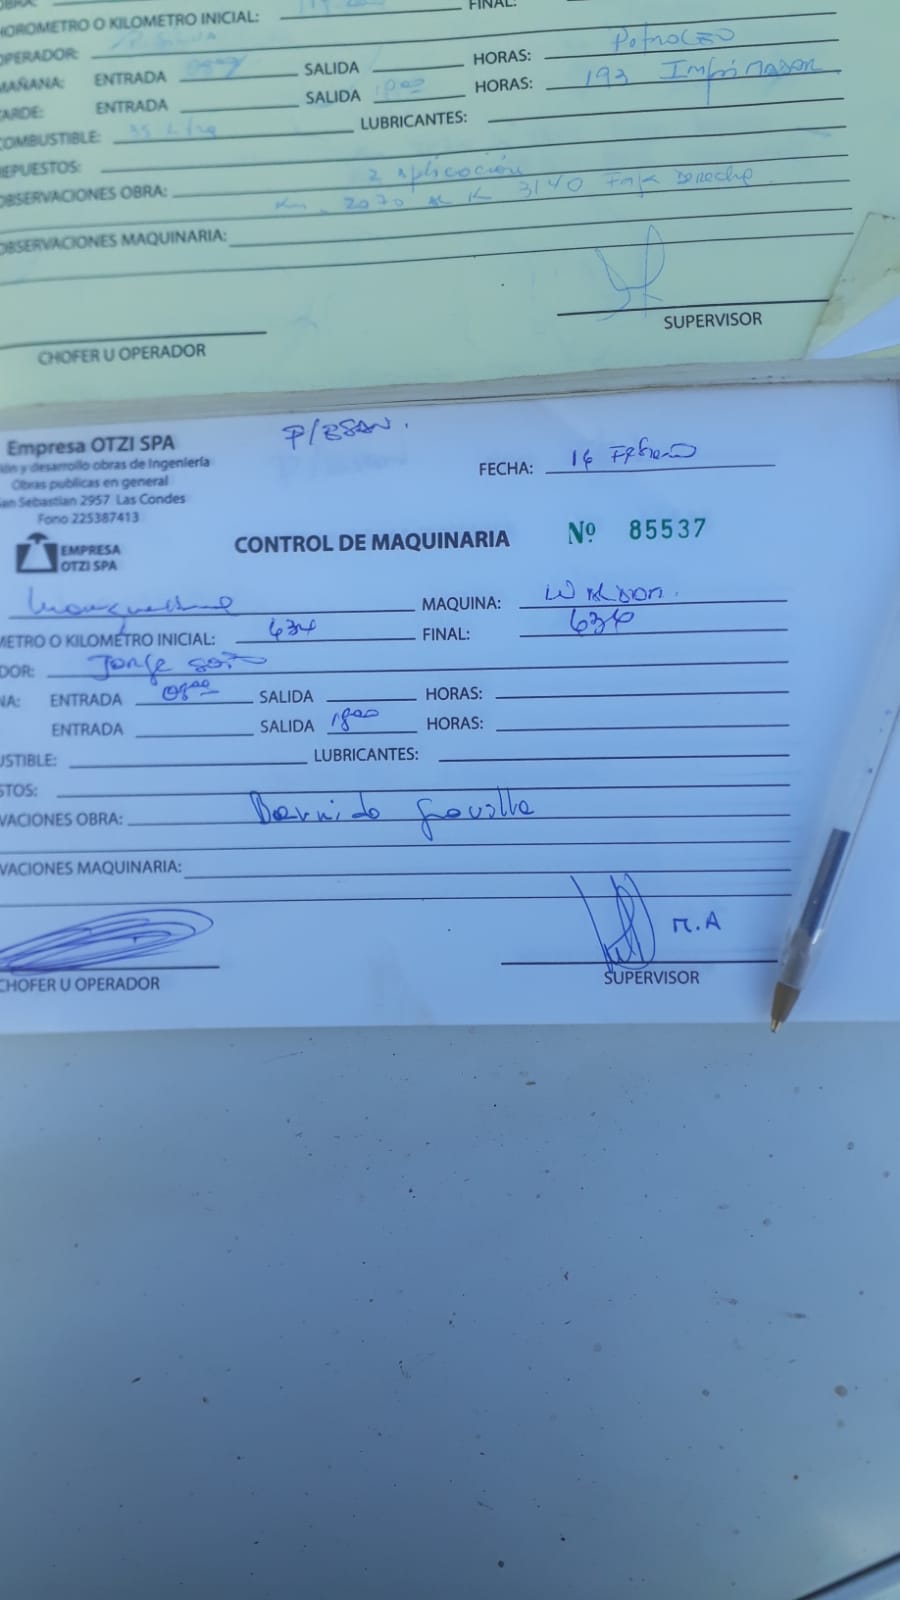 HOROMETRO O KILOMETRO INICIAL: FINAL:
OPERADOR: Petroleo
MAÑANA: ENTRADA SALIDA HORAS:
193 Imprimador
TARDE: ENTRADA SALIDA 1800 HORAS:
COMBUSTIBLE: 35 LUBRICANTES:
REPUESTOS:
OBSERVACIONES OBRA: 2 aplicación
Km. 2070 3140 Faja Derecha
OBSERVACIONES MAQUINARIA:
SUPERVISOR
CHOFER U OPERADOR
Empresa OTZI SPA
ión y desarrollo obras de Ingeniería
Obras publicas en general
an Sebastian 2957 Las Condes
Fono 225387413
FECHA:
EMPRESA
OTZI SPA
CONTROL DE MAQUINARIA
Nº 85537
MAQUINA:
METRO O KILOMETRO INICIAL: 634 FINAL: 634
DOR: Jorge
NA: ENTRADA 0800 SALIDA HORAS:
ENTRADA SALIDA 1800 HORAS:
USTIBLE: LUBRICANTES:
STOS:
VACIONES OBRA: Barrido
VACIONES MAQUINARIA:
M.A
CHOFER U OPERADOR
SUPERVISOR